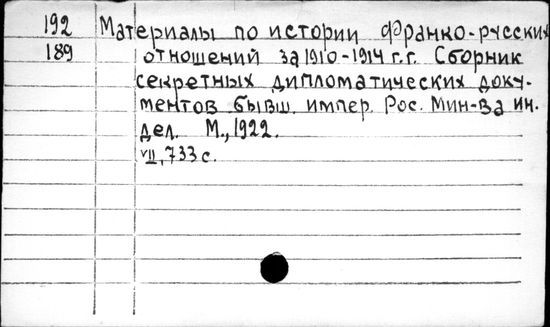 192 Материалы по истории Франко-русских
189 отношений за 1910-1914 г.г. Сборник
секретных дипломатических доку-
ментов бывш. импер. Рос. Мин-ва ин.
дел. М., 1922.
VII, 733 с.